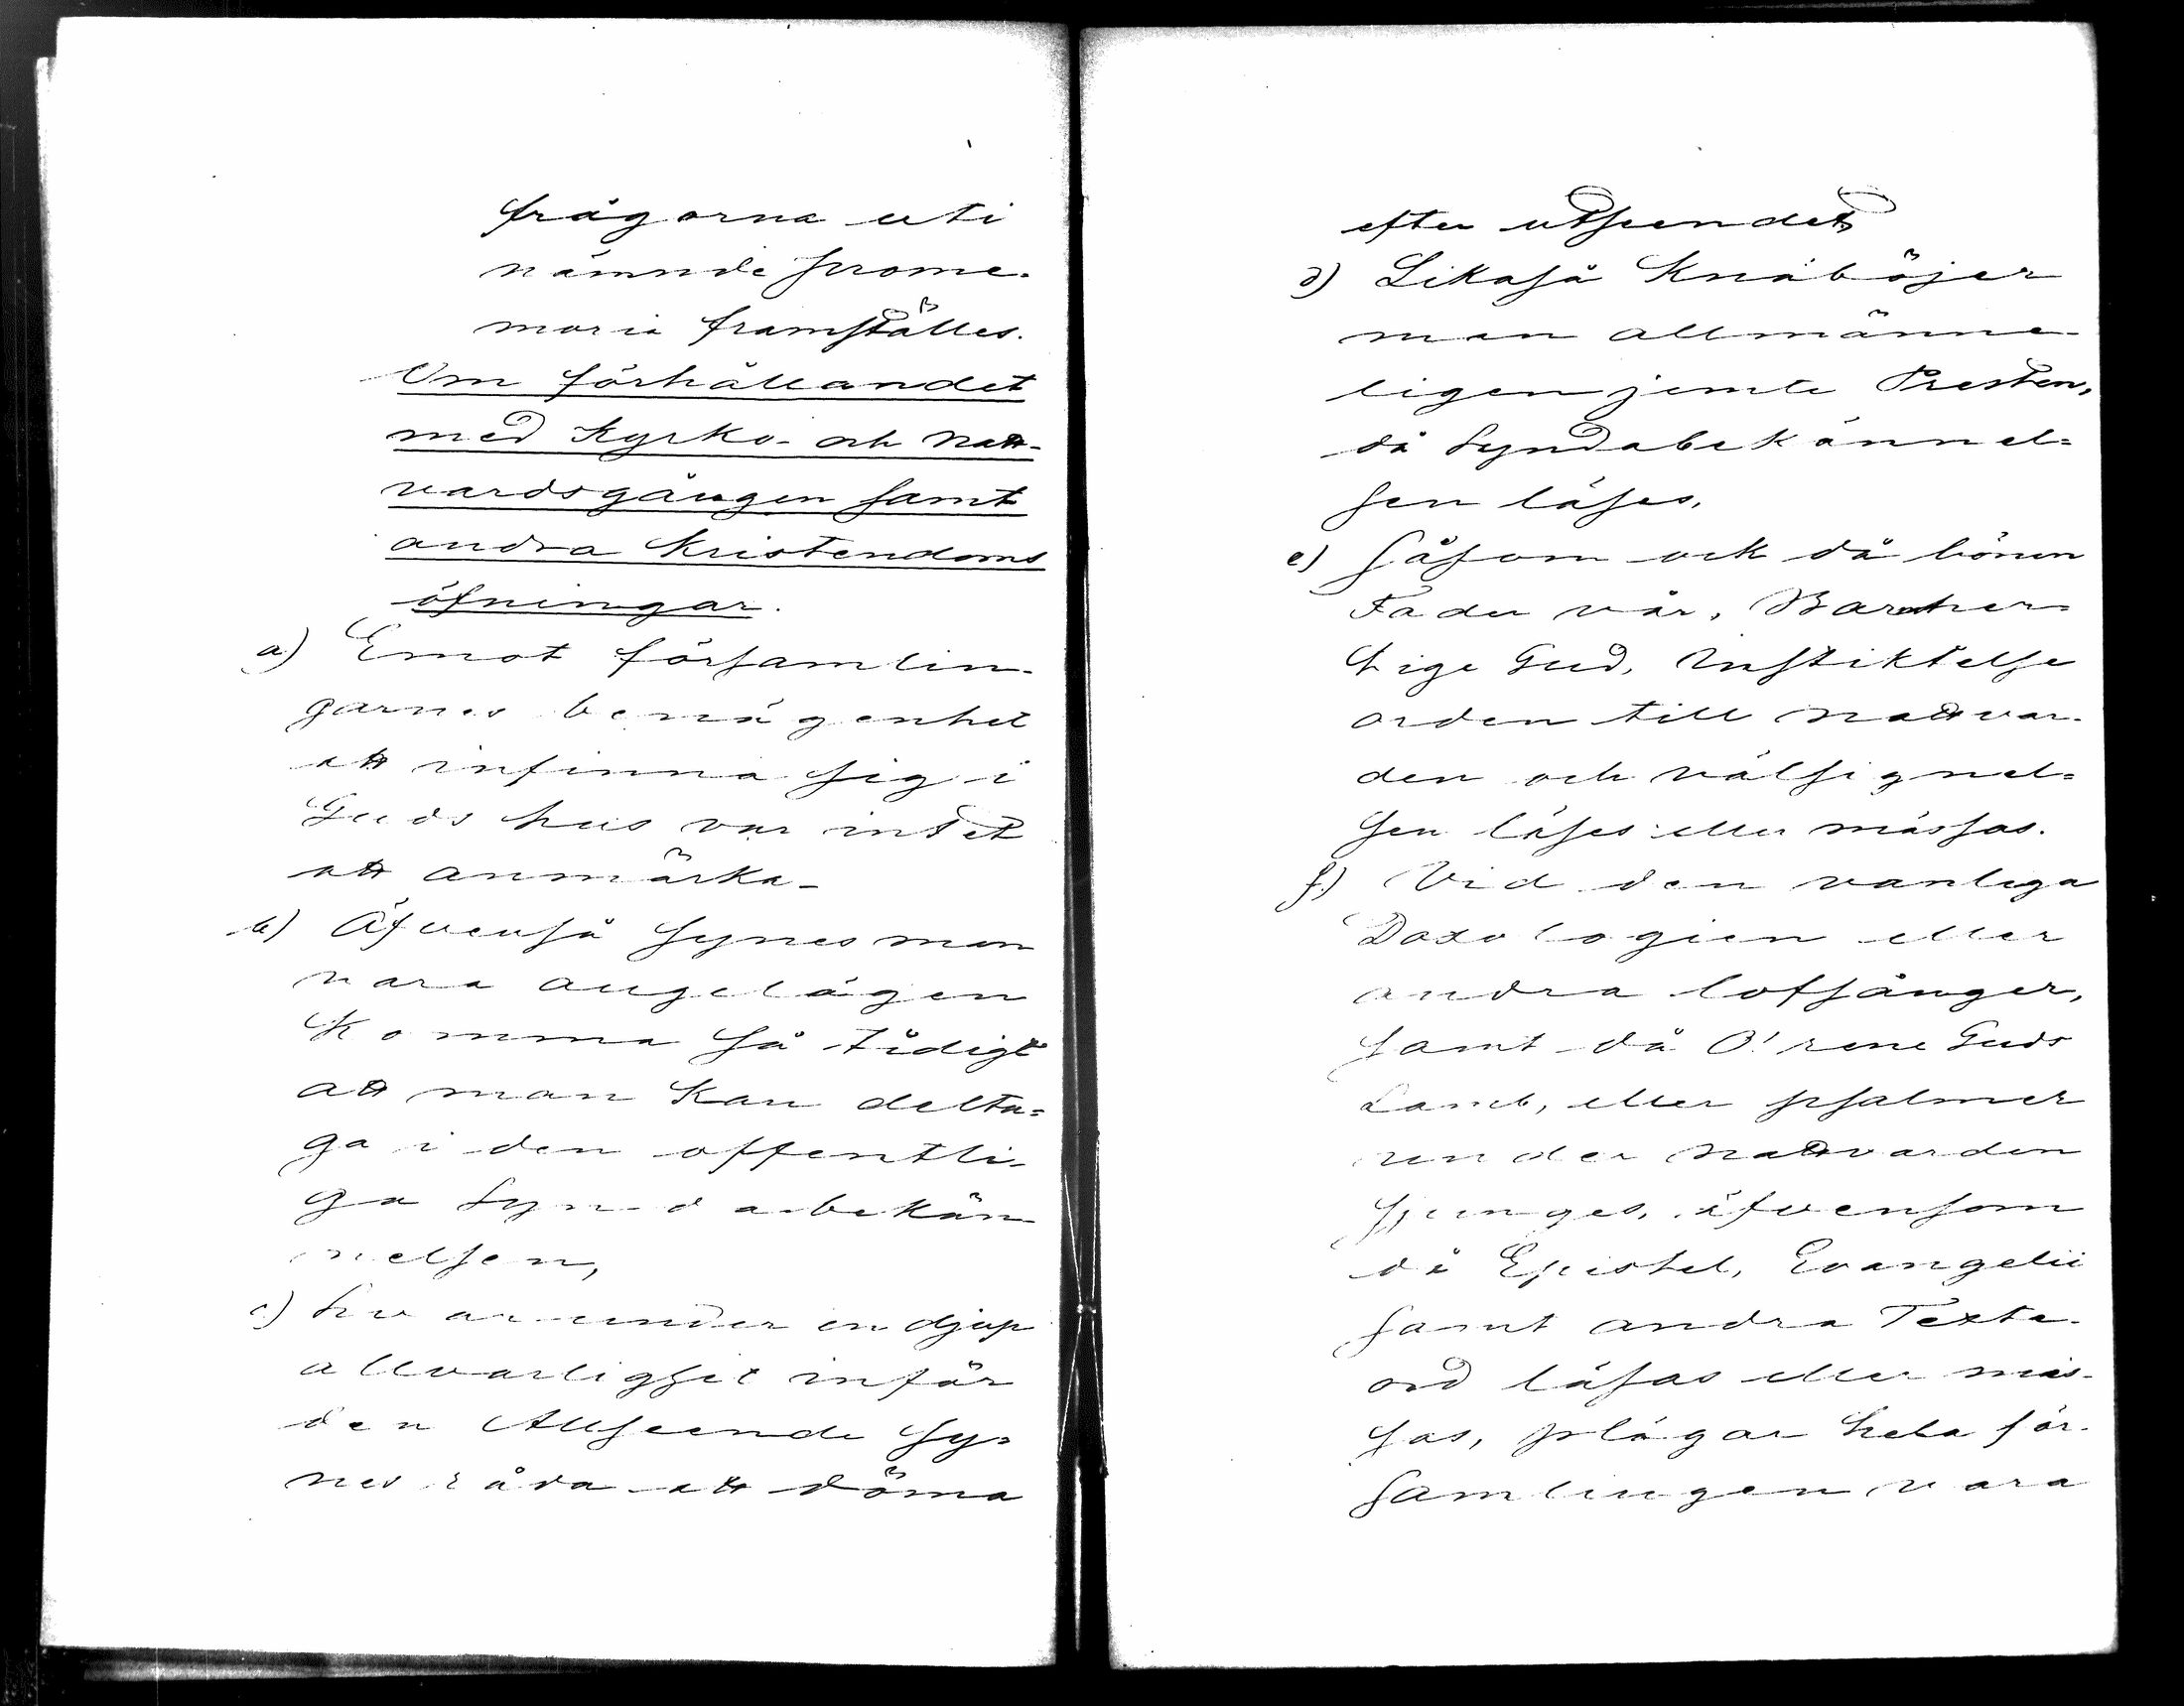 frågorna uti
nämnde prome-
moria framställes.
Om förhållandet
med Kyrko- och natt-
vardsgången samt
andra Kristendoms
öfningar.
a) Emot församlin-
garnes benägenhet
att infinna sig i
Guds hus var intet
att anmärka-
b) Äfvenså synes man
vara angelägen
Komma så tidigt
att man Kan delta=
ga i den offentli-
ga Syndabekän
nelsen,
c) hvarunder en djup
allvarlighet inför
den Allseende sy=
nes råda att döma
efter utseendet
d) Likaså Knäböjer
man allmänne-
ligen jemte Presten,
då Syndabekännel=
sen läses.
e) Såsom ock då bönen
Fader vår, Barmher-
tige Gud, Instiktelse
orden till nattvar-
den och välsignel=
sen läses eller mässas.
f.) Vid den vanliga
Doxologien eller
andra lofsånger,
samt då O! rene Guds
Lamb, eller psalmer
under nattvarden
sjunges, äfvensom
då Epistel, Evangelii
samt andra Texte-
ord läsas eller mäs-
sas, plägar hela för-
samlingen vara